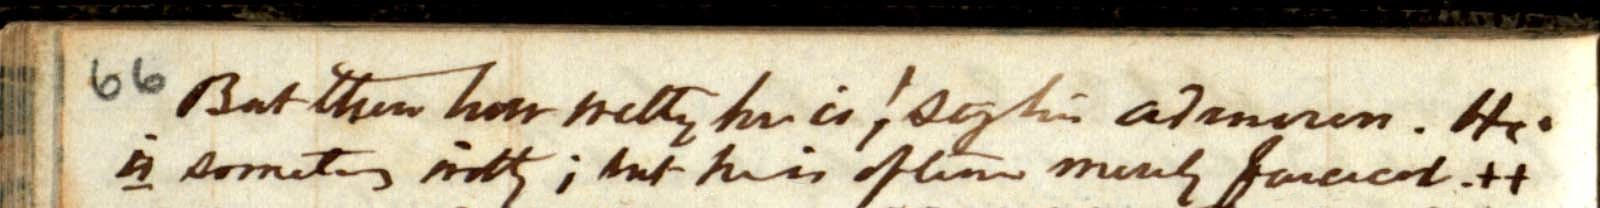 66 But then how witty he is! say his admirers. He
is sometimes witty; but he is oftener merely farcical. ++